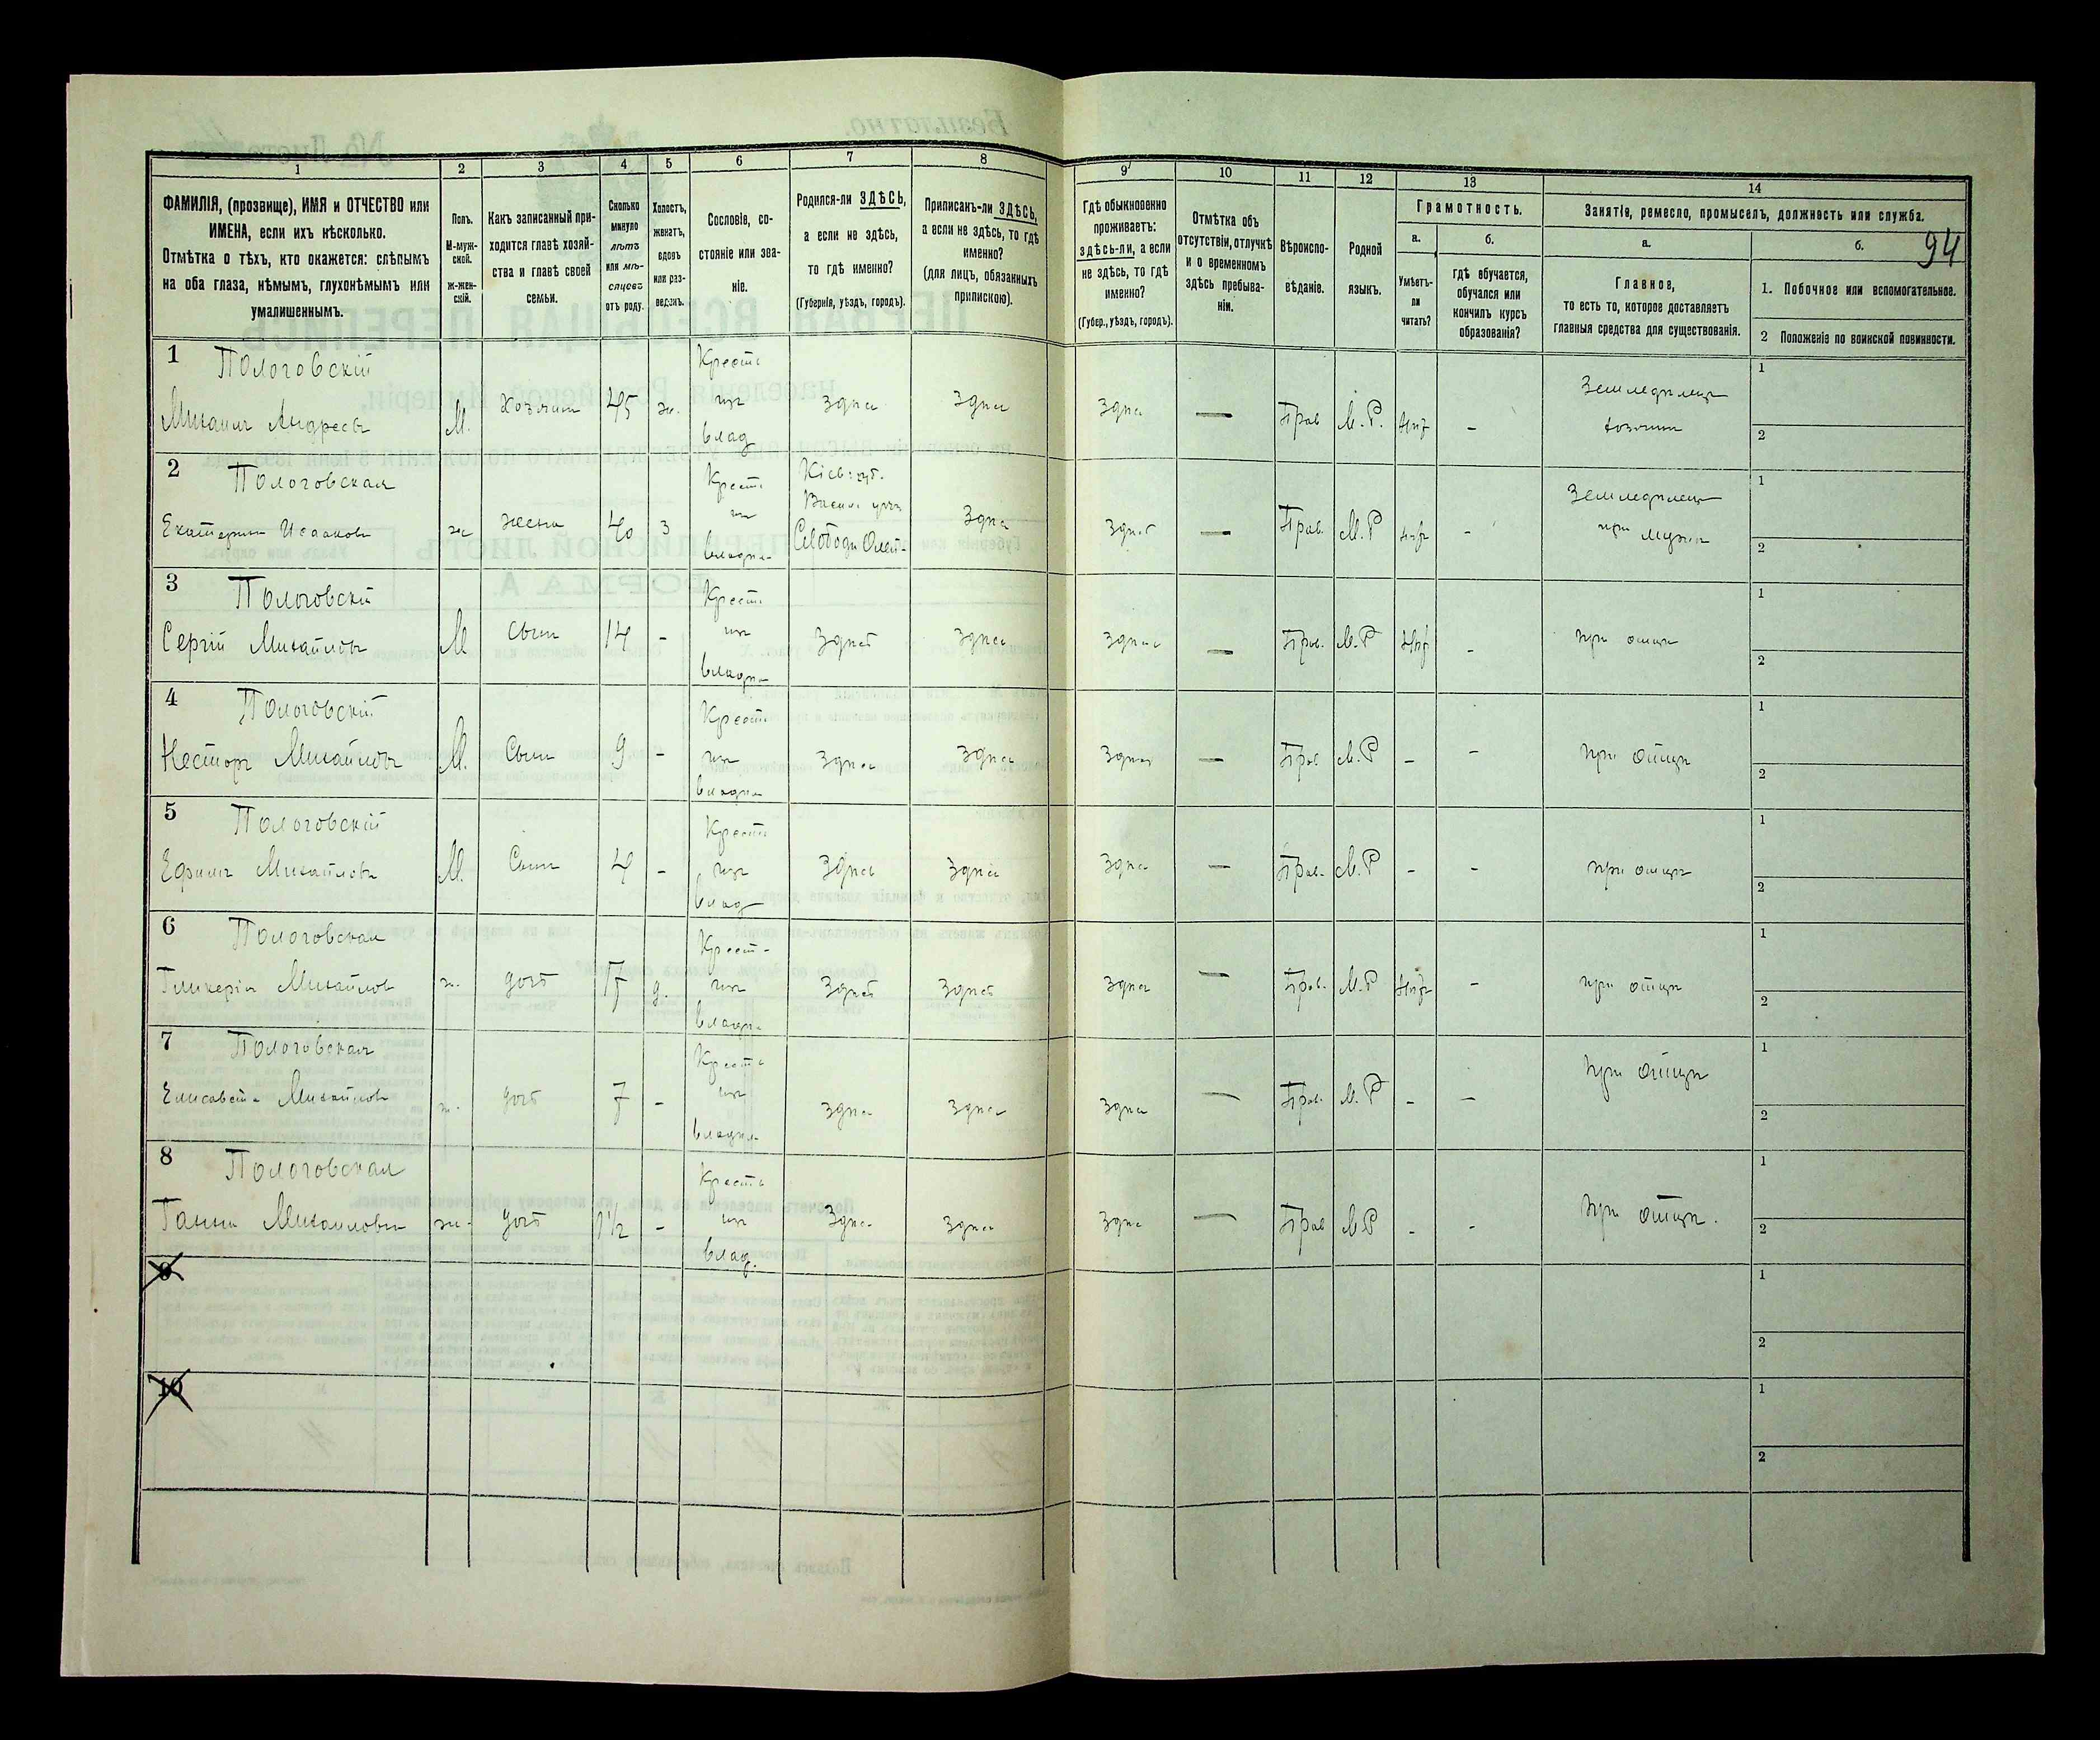 1
2
3
4
5
6
7
8
9
10
11
12
13
14
ФАМИЛІЯ, (прозвище), ИМЯ и ОТЧЕСТВО или
ИМЕНА, если ихъ нѣсколько.
Отмѣтка о тѣхъ, кто окажется: слѣпымъ
на оба глаза, нѣмымъ, глухонѣмымъ или
умалишеннымъ.
Полъ.
М-муж-
ской.
ж-жен-
скій.
Какъ записанный при-
ходится главѣ хозяй-
ства и главѣ своей
семьи.
Сколько
минуло
лѣтъ
или мѣ-
сяцевъ
отъ роду.
Холостъ,
женатъ,
вдовъ
или раз-
веденъ.
Сословіе, со-
стояніе или зва-
ніе.
Родился-ли ЗДѢСЬ,
а если не здѣсь,
то гдѣ именно?
(Губернія, уѣздъ, городъ).
Приписанъ-ли ЗДѢСЬ,
а если не здѣсь, то гдѣ
именно?
(для лицъ, обязанныхъ
припискою).
Гдѣ обыкновенно
проживаетъ:
здѣсь-ли, а если
не здѣсь, то гдѣ
именно?
(Губер., уѣздъ, городъ).
Отмѣтка объ
отсутствіи, отлучкѣ
и о временномъ
здѣсь пребыва-
ніи.
Вѣроиспо-
вѣданіе.
Родной
языкъ.
Грамотность.
а.
Умѣетъ-
ли
читать?
б.
гдѣ обучается,
обучался или
кончилъ курсъ
образованія?
Занятіе, ремесло, промыселъ, должность или служба.
а.
Главное,
то есть то, которое доставляетъ
главныя средства для существованія.
б.
94
1. Побочное или вспомогательное.
2 Положеніе по воинской повинности.
1 Пологовскій
Михаилъ Андреевъ
М. Хозяинъ 45 ж.
Крест.
изъ
влад
здѣсь здѣсь здѣсь — Прав М.Р. нѣт -
Земледѣлецъ
хозяинъ
1
2
2 Пологовская
Екатерина Исааков
ж жена 40 з
Крест.
из
владѣл
Кіев. губ.
Слободы
здѣсь здѣсь — Прав. М.Р нѣт -
Земледѣлец
при мужѣ
1
2
3 Пологовскій
Сергій Михайловъ
М Сынъ 14 -
Крест.
изъ
владѣ
здѣсь здѣсь здѣсь — Прав. М.Р нѣт -
при отцѣ
1
2
4 Пологовскій
Несторъ Михайловъ
М. Сынъ 9 -
Крест.
изъ
владѣл
здѣсь здѣсь здѣсь — Прав М.Р - -
при отцѣ
1
2
5 Пологовскій
Ефимъ Михайловъ
М. Сынъ 4 -
Крест.
изъ
влад
здѣсь здѣсь здѣсь — Прав. М.Р - -
при отцѣ
1
2
6 Пологовская
Гликерія Михайлов
ж. дочь 17 д.
Крест-
изъ
владѣ.
здѣсь здѣсь здѣсь — Прав. М.Р нѣт -
при отцѣ
1
2
7 Пологовская
Елисавета Михайлов
ж. дочь 7 -
Крест.
изъ
владѣл
здѣсь здѣсь здѣсь — Прав. М.Р - —
при отцѣ
1
2
8 Пологовская
Ганна Михаиловна
ж- дочь 1½ -
Крест.
изъ
влад.
здѣсь здѣсь здѣсь — Прав М.Р - -
при отцѣ.
1
2
9
1
2
10
1
2